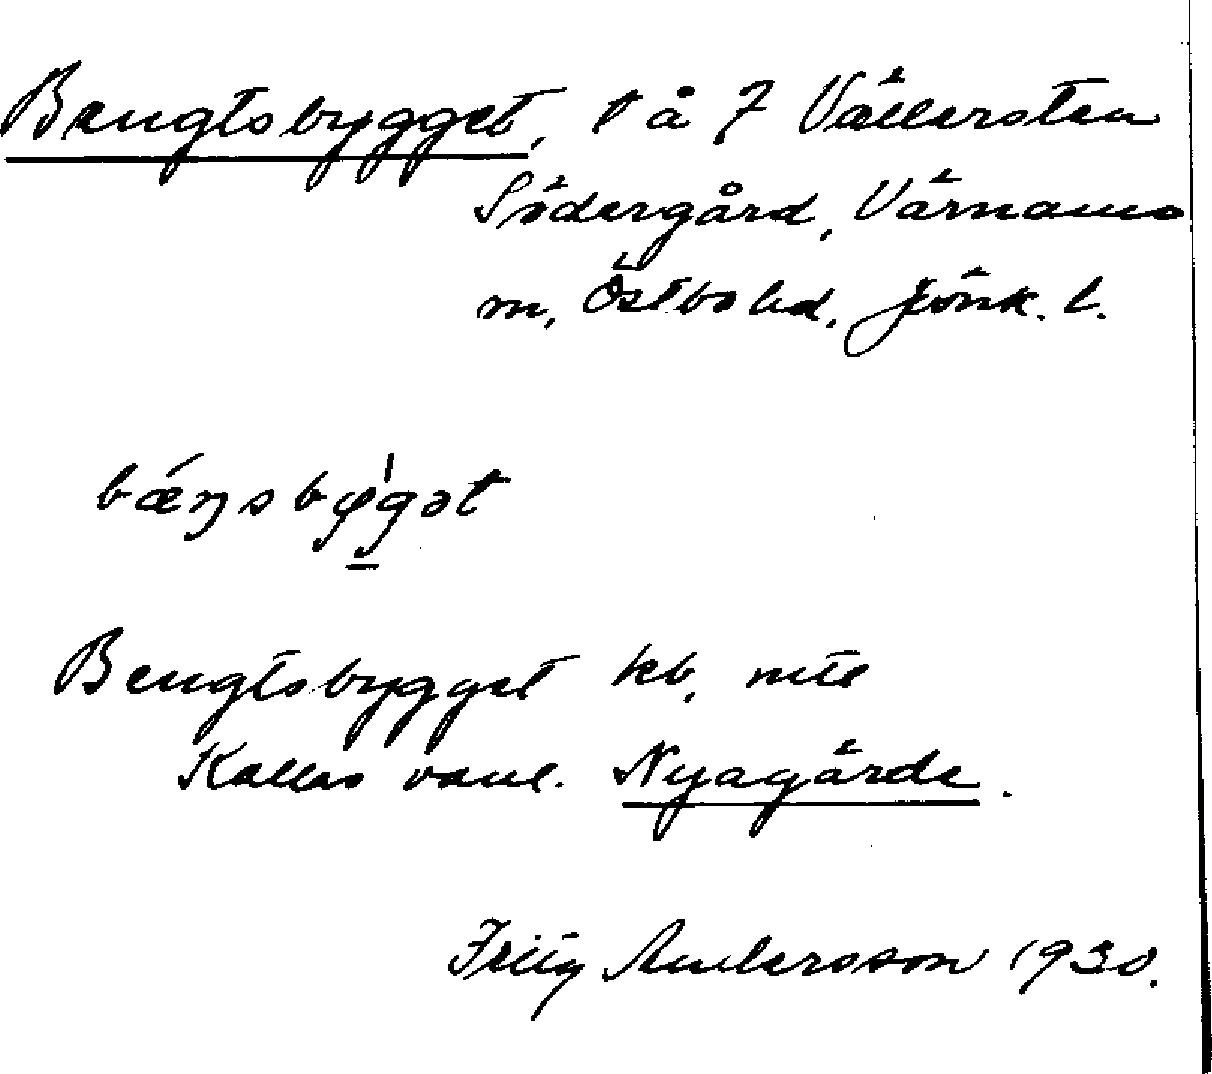 Bengtsbygget, t å 7 Vällersten
Södergård, Värnamo
m, Östbo hd, Jönk. l.
bǽŋsby̍gət
Bengtsbygget kb,
Kallas vanl. Nyagärde.
Andersson 1930.